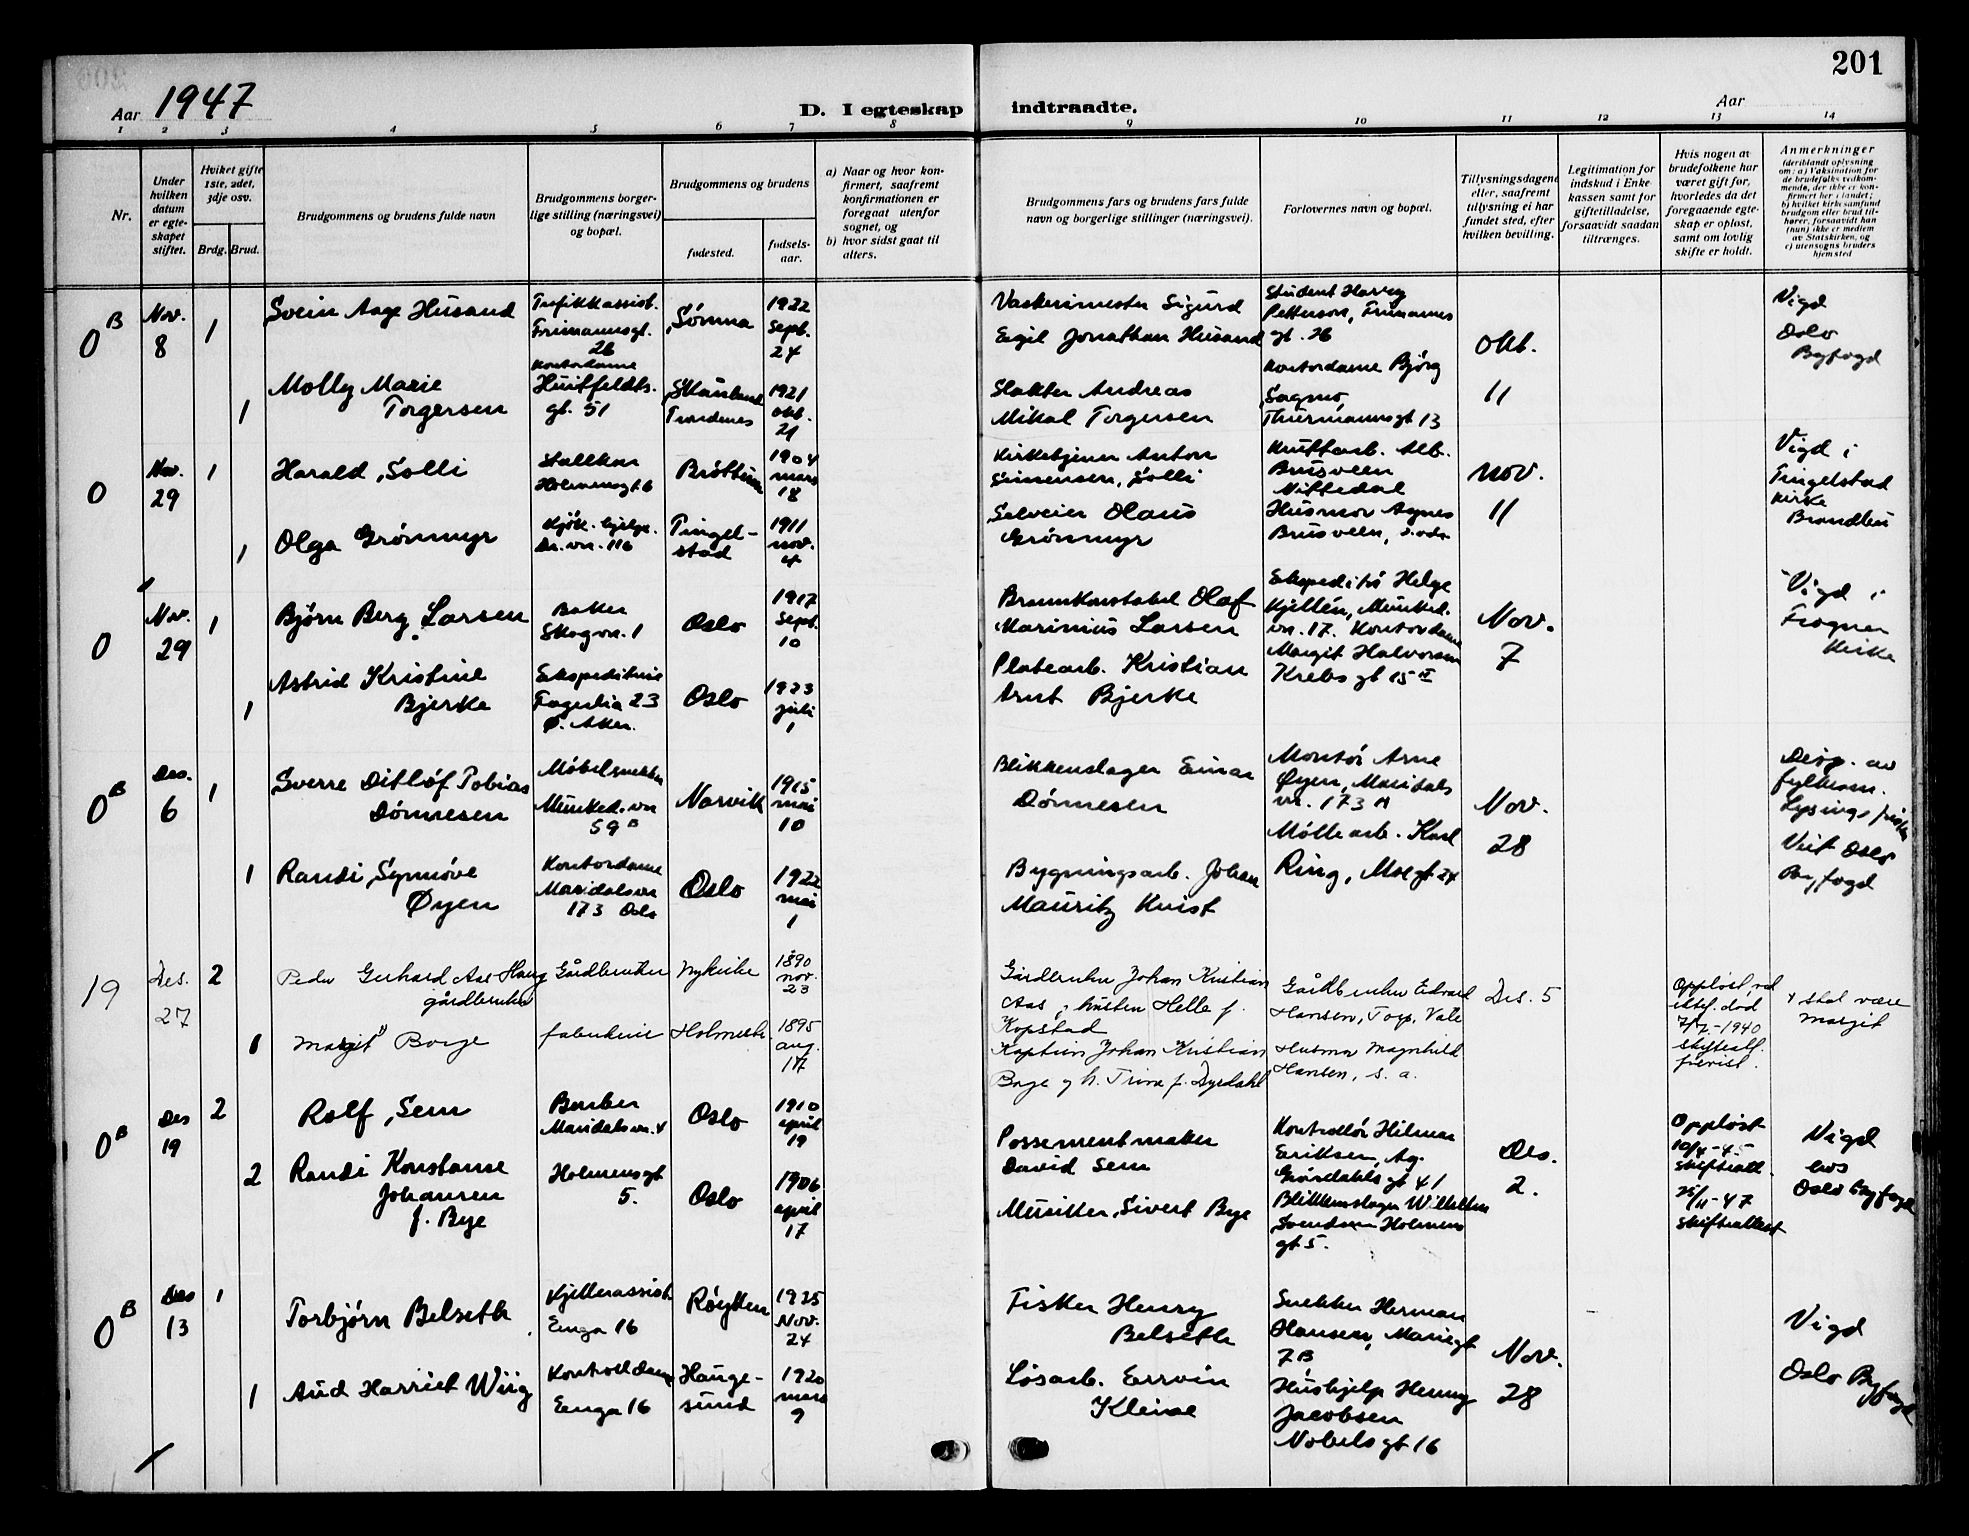 201
Aar 1947
D. I egteskap indtraadte.
Aar
1 2 3 4 5 6 7 8 9 10 11 12 13 14
Nr.
Under hvilken datum er egteskapet stiftet.
Hviket gifte 1ste, 2det, 3dje osv.
Brdg. Brud.
Brudgommens og brudens fulde navn
Brudgommens borgerlige stilling (næringsvei) og bopæl.
Brudgommens og brudens
fødested.
fødselsaar.
a) Naar og hvor konfirmert, saafremt konfirmationen er foregaat utenfor sognet, og
b) hvor sidst gaat til alters.
Brudgommens fars og brudens fars fulde navn og borgerlige stillinger (næringsvei).
Forlovernes navn og bopæl.
Tillysningsdagene eller, saafremt tillysning ei har fundet sted, efter hvilken bevilling.
Legitimation for indskud i Enkekassen samt for giftetilladelse, forsaavidt saadan tiltrænges.
Hvis nogen av brudefolkene har været gift før, hvorledes da det foregaaende egteskap er opløst, samt om lovlig skifte er holdt.
Anmerkninger
(deriblandt oplysning om: a) Vaksination for de brudefolks vedkommende, der ikke er konfirmert her i landet; b) hvilket kirkesamfund brudgom eller brud tilhører, forsaavidt han (hun) ikke er medlem av Statskirken, og c) utensogns bruders hjemsted
0 B
Nov. 8
1
Svein Aage Husand
Trafikkassist.
Frimannsgt.
26
Sømna
1922
Sept.
24
Vaskerimester Sigurd
Eigil Jonathan Husand
Student Harry
Petterson, Frimannes
gt. 26
Okt.
11
Vigd
Oslo
Byfogd
1
Molly Marie
Torgersen
Kontordame
Huitfeldts.
gt. 51
Skånland
Trondenes
1921
okt.
21
Slakter Andreas
Mikal Torgersen
Kontordame Bjørg
Sagmo,
Thurmannsgt 13
0
Nov.
29
1
Harald Solli
Stallkar
Holmensgt 6
Brøttum
1904
mars
18
Kirketjener Anton
Simensen, Solli
Kruttarb. Alb.
Brusveen
Nittedal
Nov.
11
Vigd i
Tingelstad
kirke
Brandbu
1
Olga Grønmyr
Kjøk. hjelp.
Dr. vn. 116
Tingel-
stad
1911
nov.
4
Salveier Olaus
Grønmyr
Husmor Agnes
Brusveen, s. adr.
0
Nov.
29
1
Bjørn Berg Larsen
Baker
Skogvn. 1
Oslo
1917
Sept.
10
Brannkonstabel Olaf
Marinius Larsen
Ekspeditør Helge
Kjellén, Munked.
vn. 17. Kontordame
Nov.
7
Vigd i
Frogner
Kirke
1
Astrid Kristine
Bjerke
Ekspeditrise
Fagerlia 23
Ø. Aker.
Oslo
1923
juli
1
Platearb. Kristian
Arnt Bjerke
Margit Halvorsen
Krebs gt 15 IV
0 B
Des.
6
1
Sverre Ditløf Tobias
Dønnesen
Møbelsnekker
Munked. vn
59 B
Narvik
1915
mai
10
Blikkenslager Einar
Dønnesen
Montør Arne
Øyen, Maridals
vn. 173 A
Nov.
28
Disp. av
fylkesm.
Lysingsfristen
Viet Oslo
Byfogd
1
Randi Synnøve
Øyen
Kontordame
Maridalsvn
173 Oslo
Oslo
1922
mai
1
Bygningsarb. Johan
Mauritz Kvist
Møllearb. Karl
Ring, Moe gt 24
19
Des.
27
2
Peder Gerhard Aas Haug
gårdbruker
Gårdbruker
Nykirke
1890
nov.
23
Gårdbruker Johan Kristian
Aas, hustru Helle f.
Kopstad
Gårdbruker Edvard
Hansen, Torp, Vale
Des. 5
Oppløst ved
ektef. død
7/7-1940
skifteatt.
fremvist.
x skal være
Margit
1
Margit x Borge
Holmestr.
1895
aug.
17
Kaptein Johan Kristian
Borge og h. Trine f. Dyrdahl
Husmor Magnhild
Hansen, s. a.
0 B
Des
19
2
Rolf Sem
Barber
Maridalsvn. 4
Oslo
1910
april
19
Possementmaker
David Sem
Kontrollør Hilmar
Eriksen, Ag.
Grøndahls gt 41
Des.
2.
Oppløst
10/4-45
skifteatt.
Vigd
hos
Oslo Byfogd
2
Randi Konstanse
Johansen
f. Bye
Holmensgt
5.
Oslo
1906
april
17
Musiker Sivert Bye
Blikkenslager Wilhelm
Svendsen Holmens
gt 5.
25/11-47
skifteattest
0 B
Des
13
1
Torbjørn Belseth
Kjellerassist.
Enga 16
Røyken
1925
Nov.
24
Fisker Henry
Belseth
Snekker Herman
Hansen, Mariegt
7 B
Nov.
28
Vigd
Oslo Byfogd
1
Aud Harriet Wiig
Kontordame
Enga 16
Hauge-
sund
1920
mars
9
Løsarb. Errvin
Kleive
Hushjelp Henny
Jacobsen
Nobels gt 16